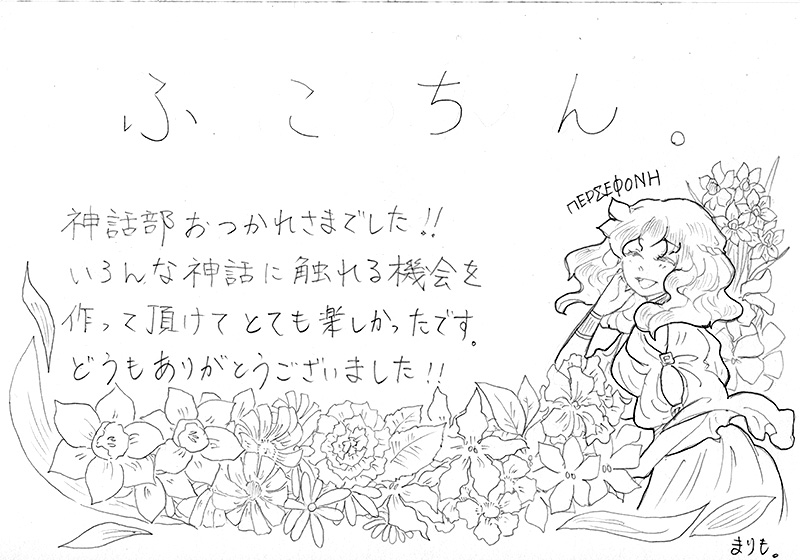 ふこちん。
ΠΕΡΣΕΦΟΝΗ
神話部おつかれさまでした!!
いろんな神話に触れる機会を
作って頂けてとても楽しかったです。
どうもありがとうございました!!
まりも。